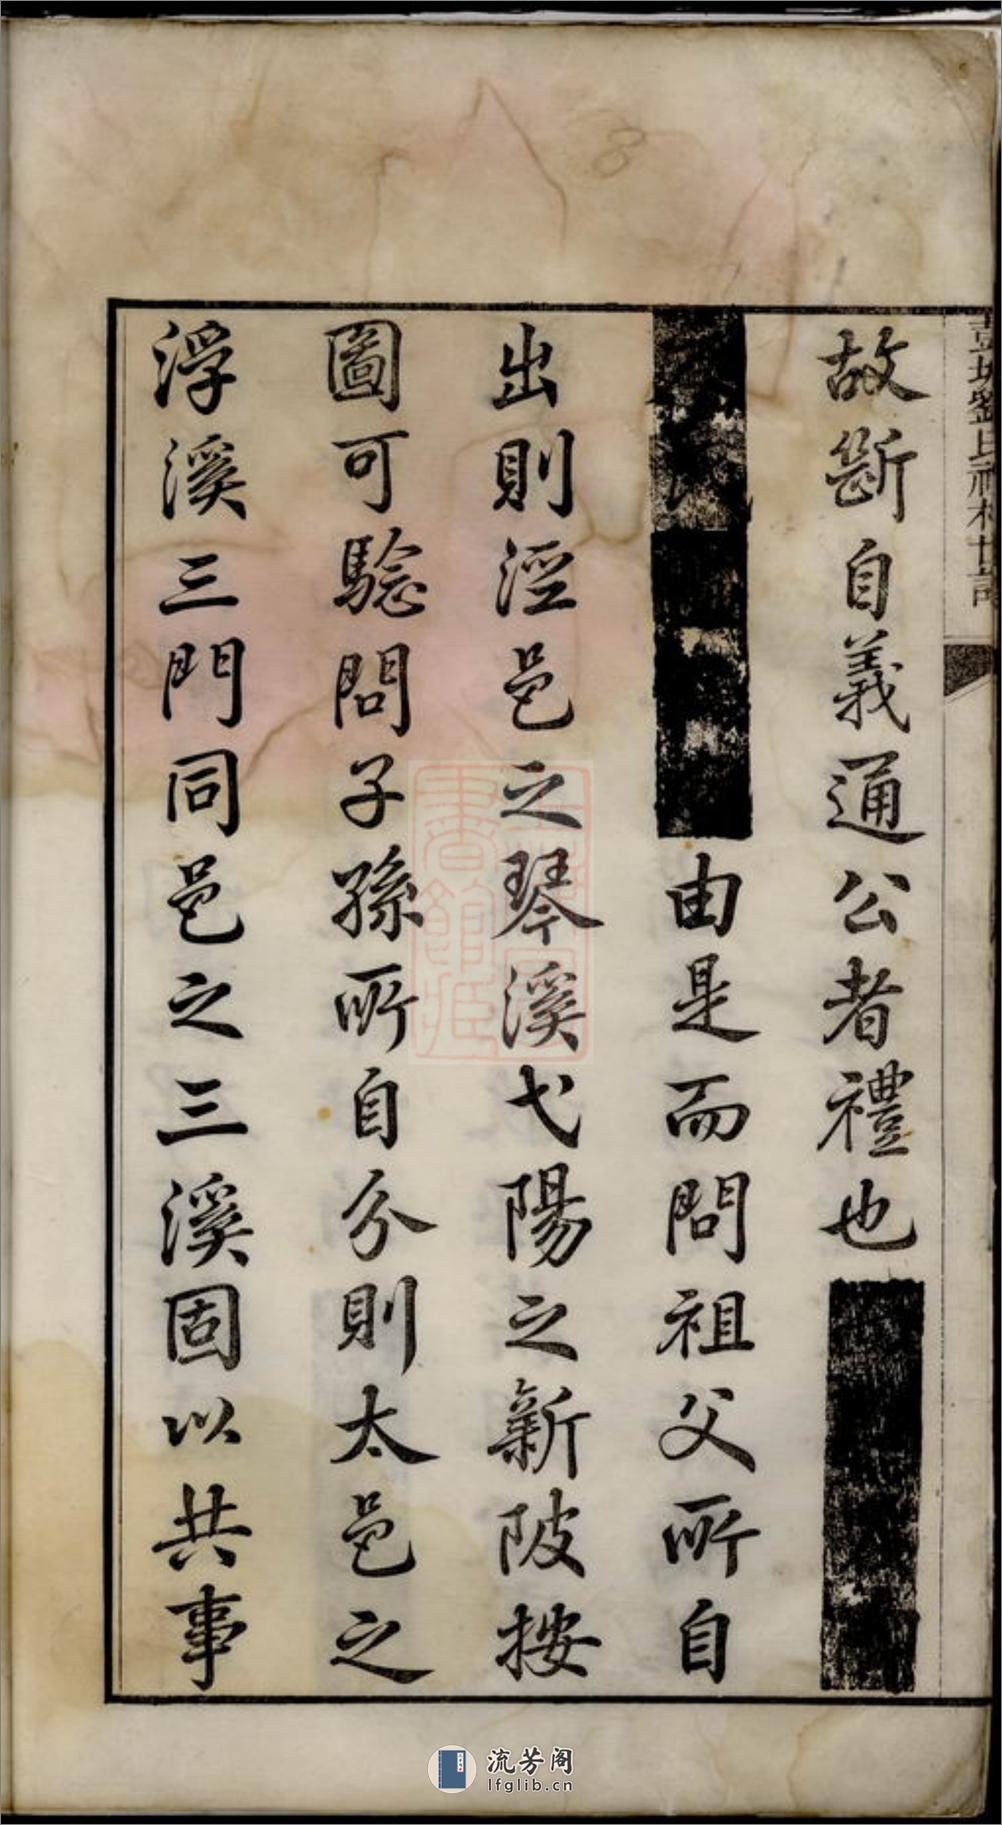 劉氏
故斷自義通公者禮也
由是而問祖父所自
出則涇邑之琴溪弋陽之新陂按
圖可驗問子孫所自分則太邑之
浮溪三門同邑之三溪固以共事
8
流芳阁
lfglib.cn